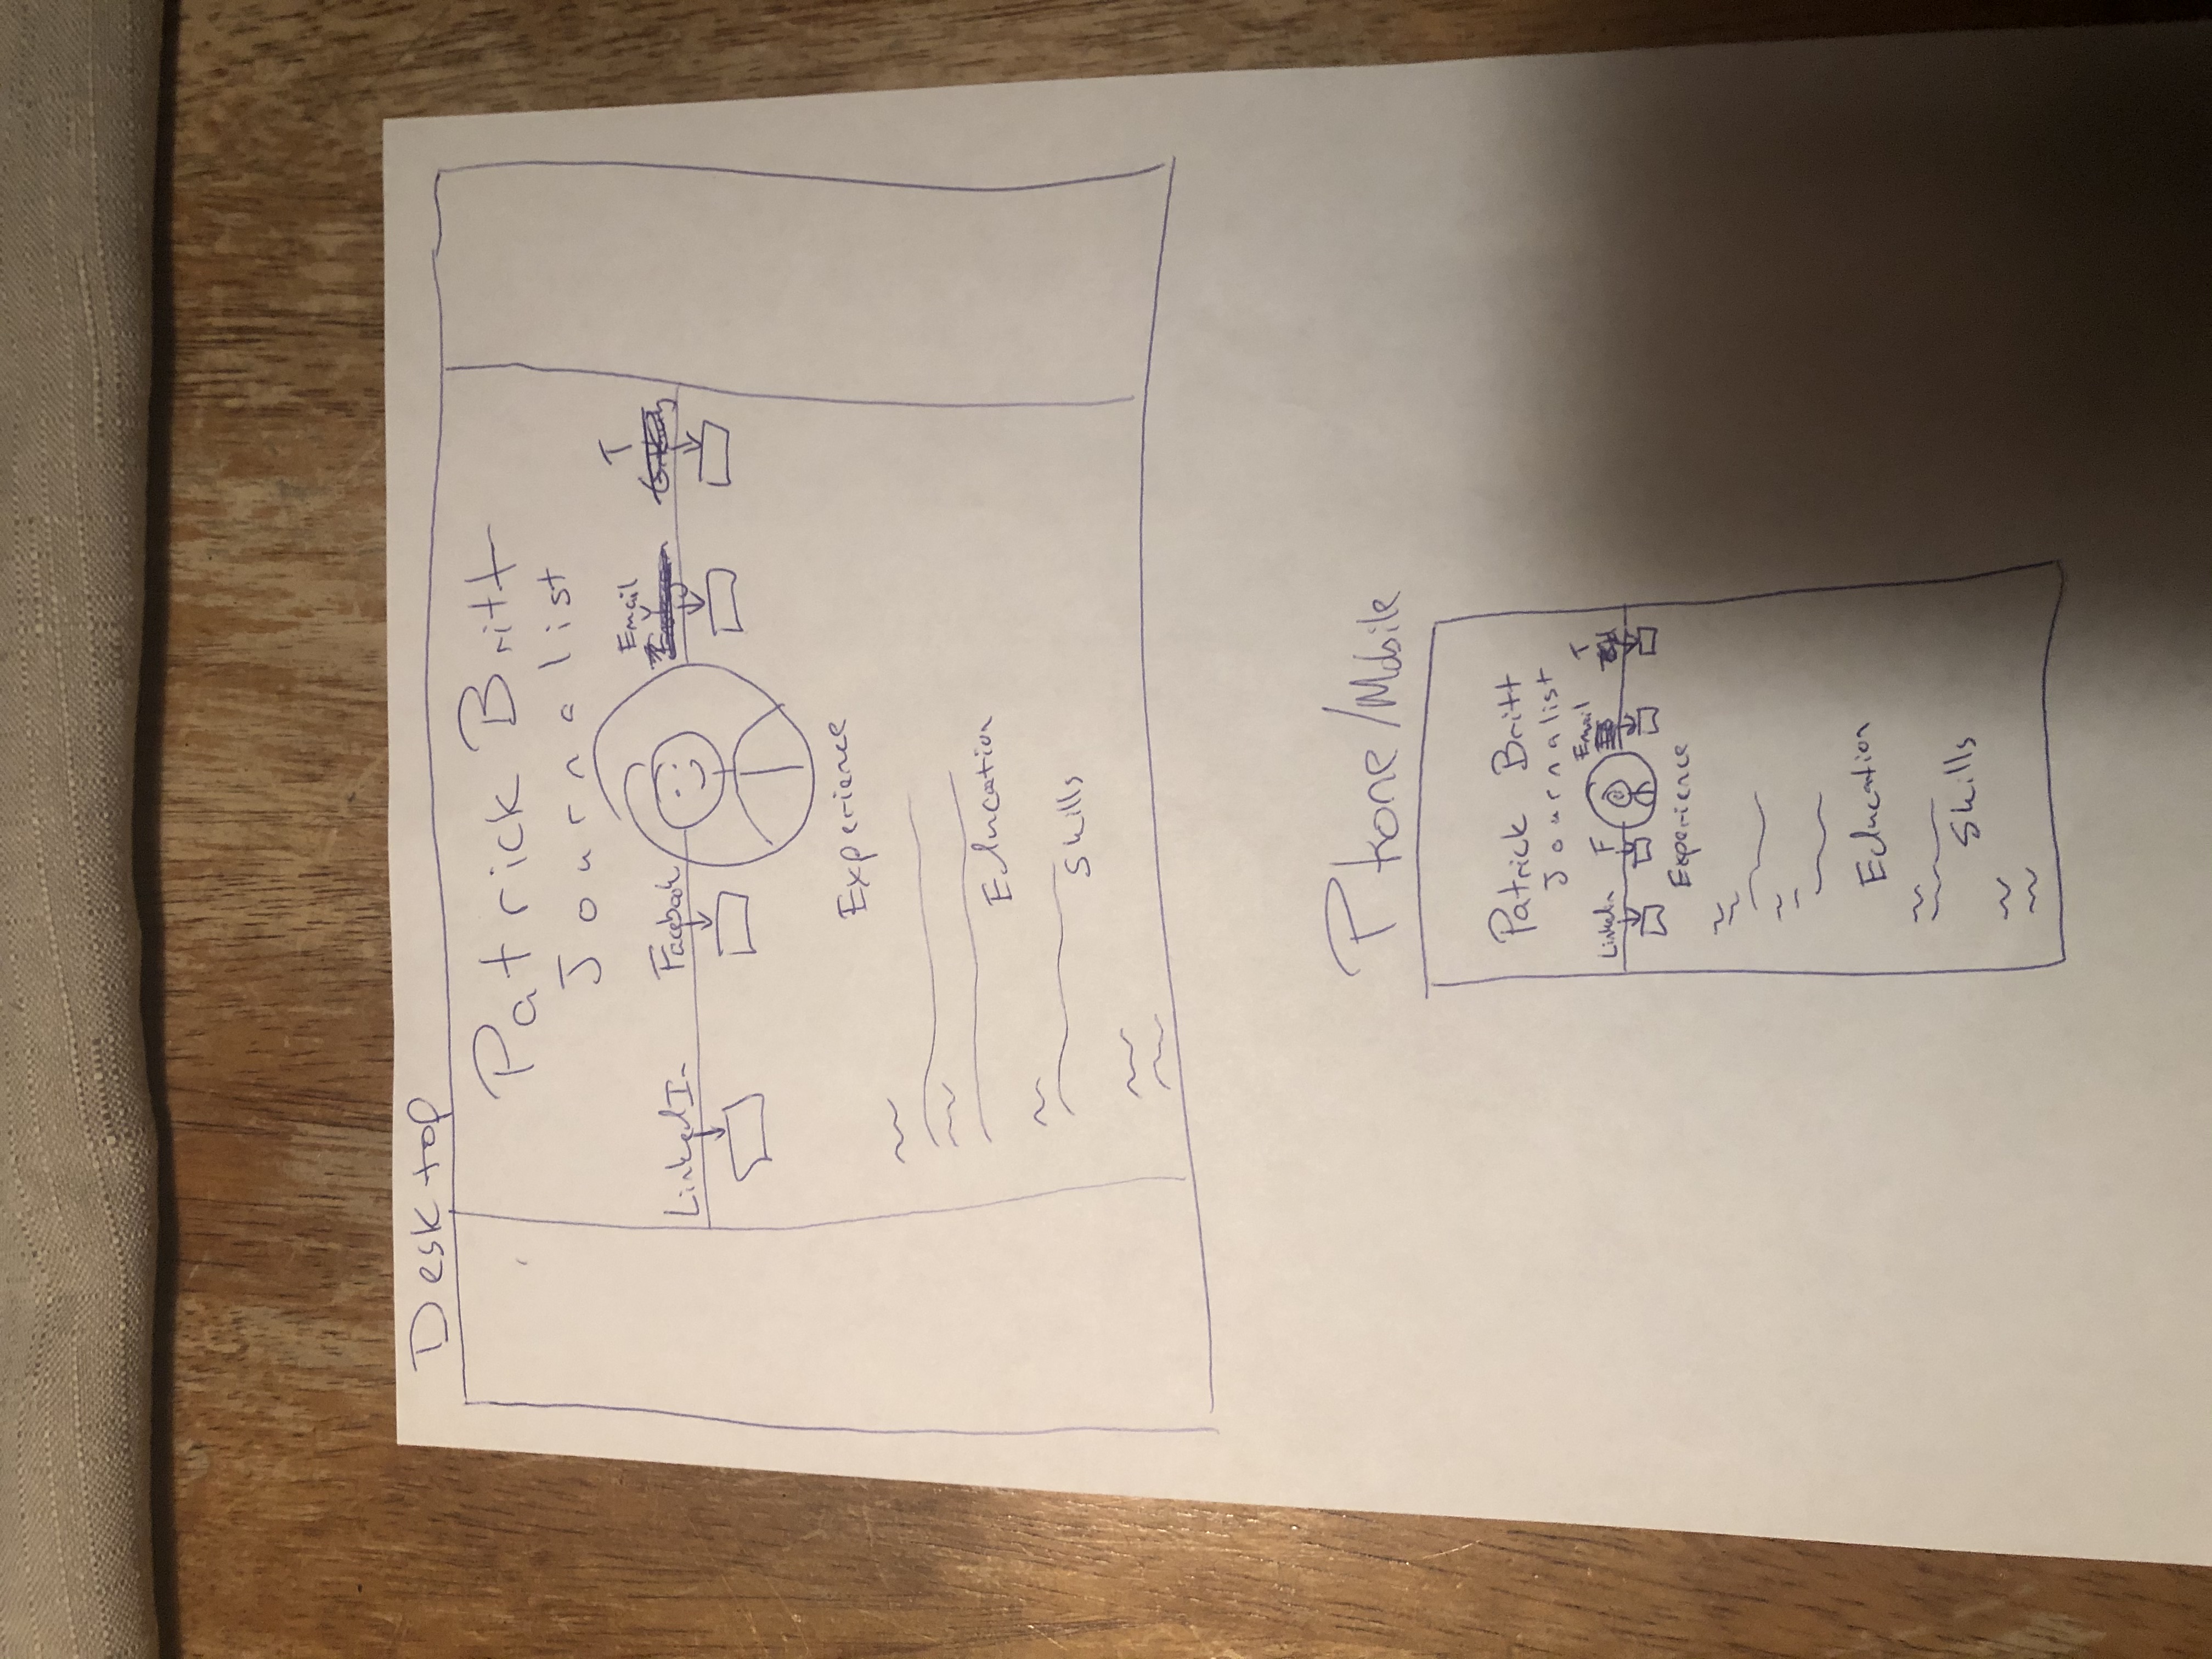 Desktop
Patrick Britt
Journalist
LinkedIn Facebook Email T
Experience
Education
Skills
Phone/Mobile
Patrick Britt
Journalist
Linkedin F Email T
Experience
Education
Skills